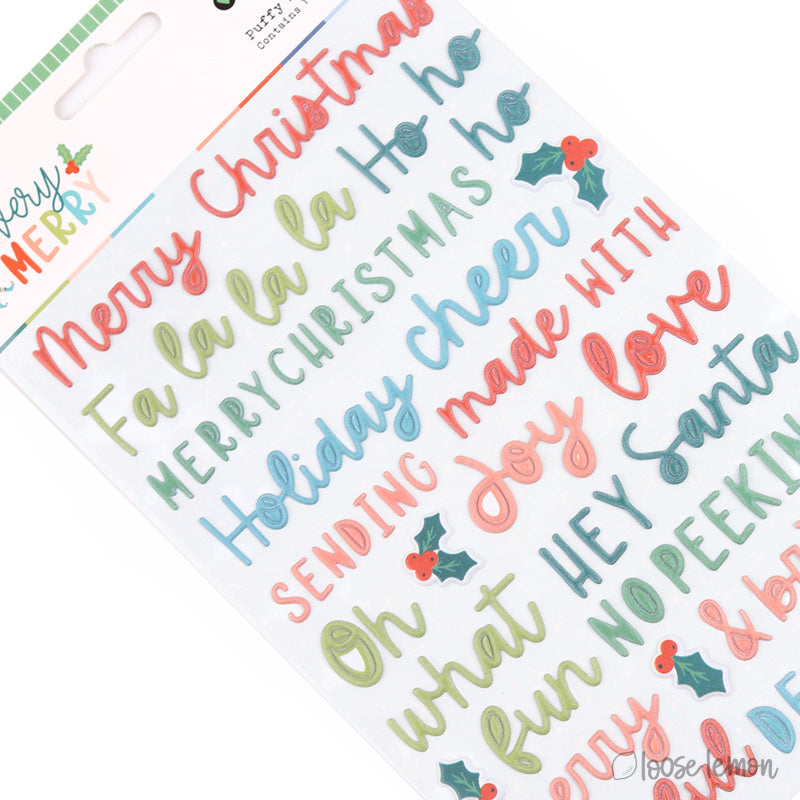 Puffy
Contains
very
MERRY
Merry Christmas
Ho ho
ho
Fa la la la
MERRY CHRISTMAS
Holiday cheer
made WITH
love
SENDING joy
HEY Santa
Oh
what
fun
NO PEEKIN
& br
erry
DE
loose lemon